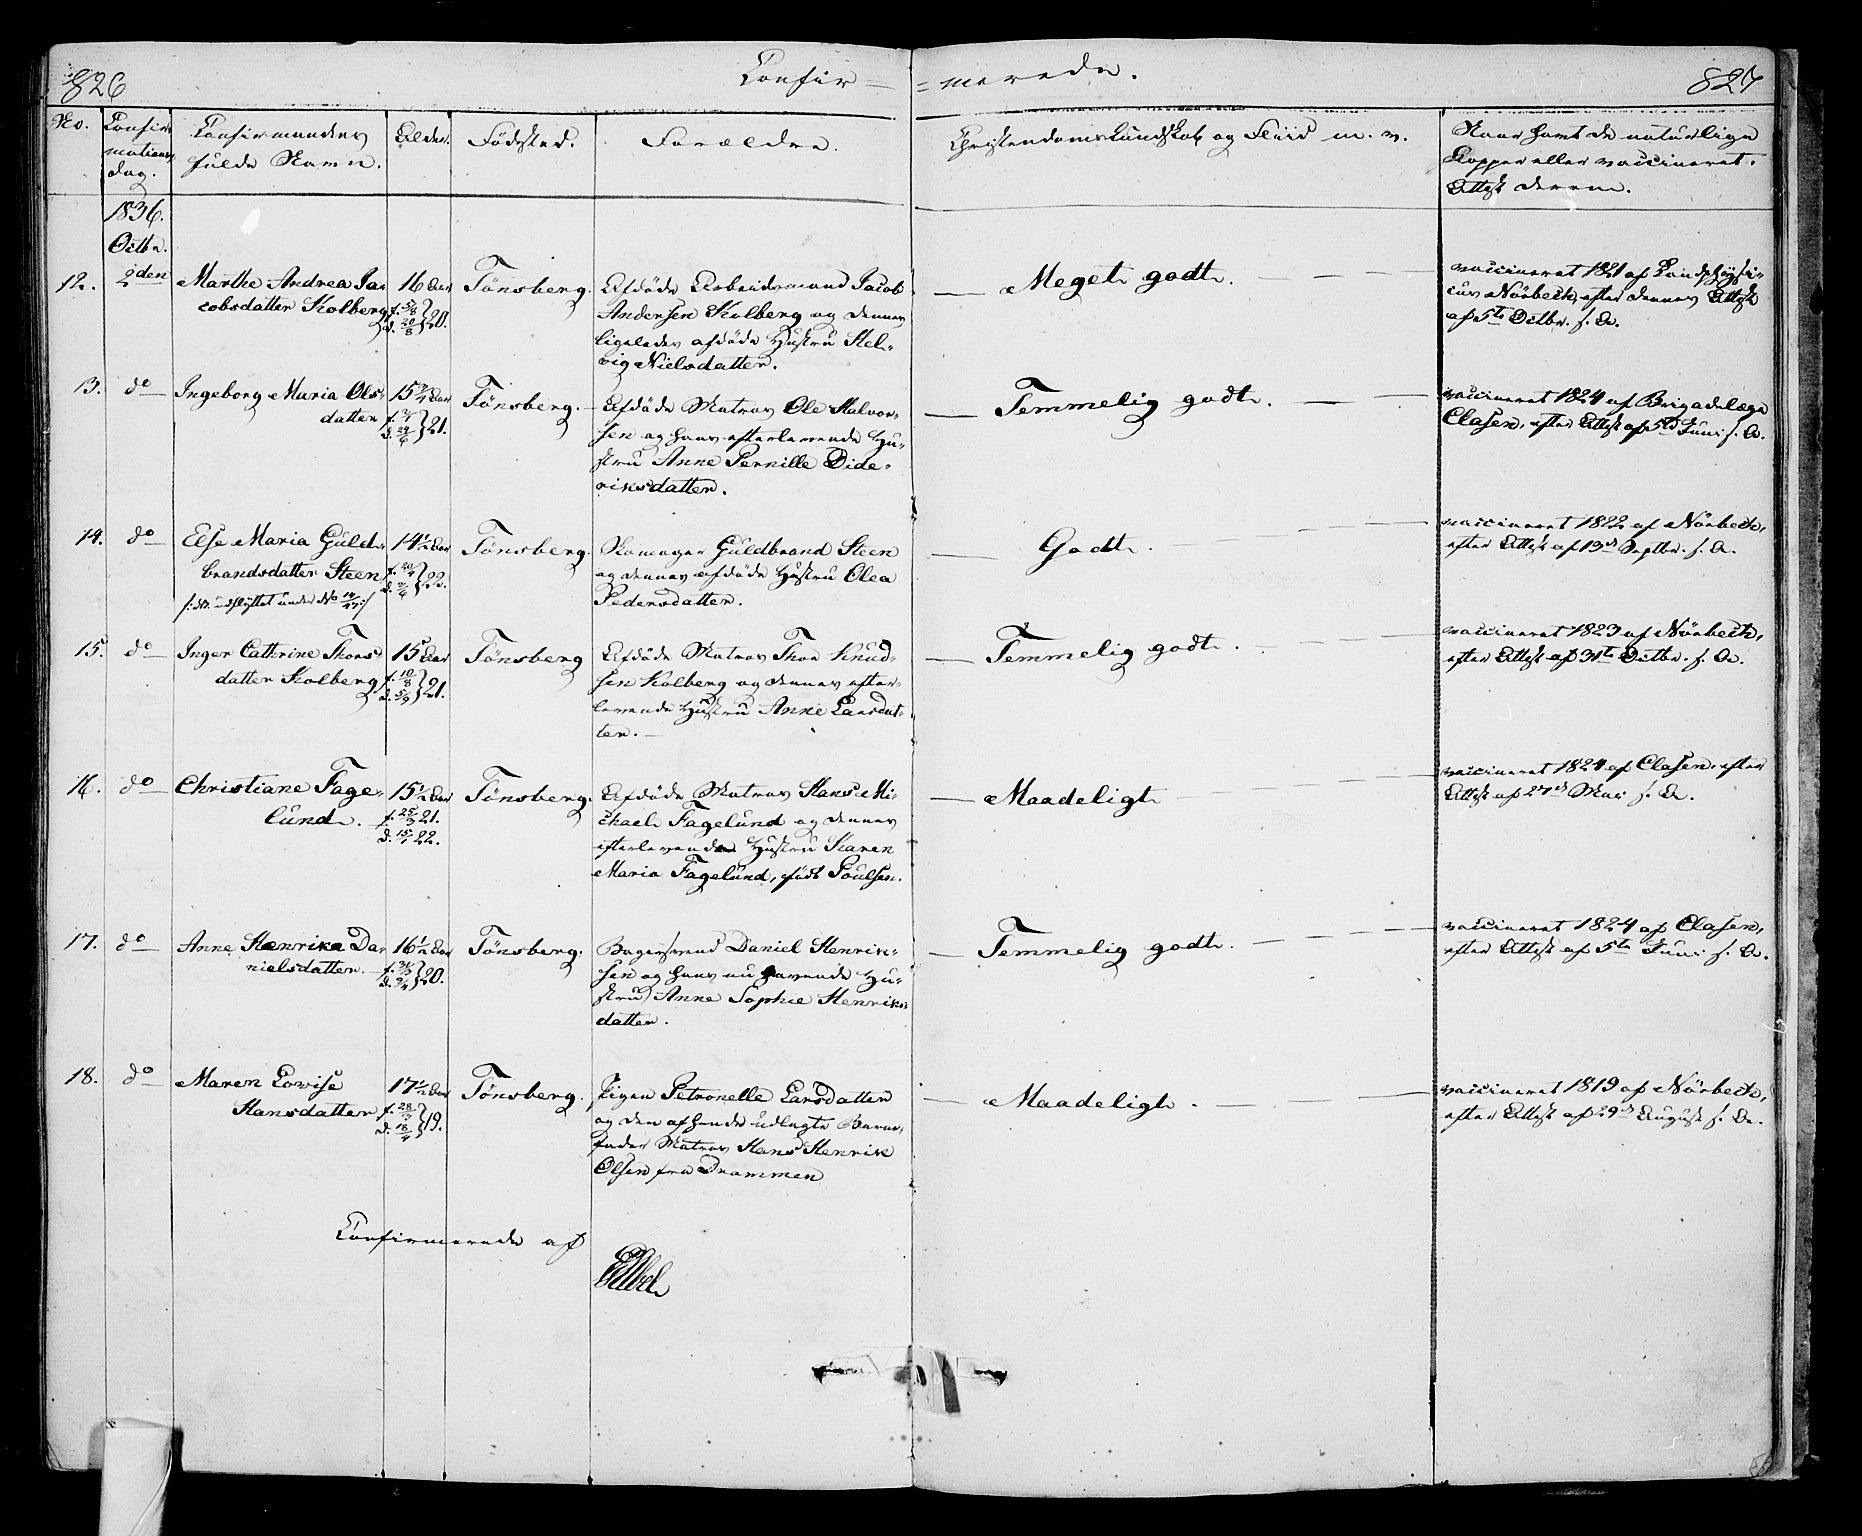 826
Confir=
=merede.
827
No.
Confir-
mations
dag.
Confirmandens
fulde Navn.
Alder.
Fødsted.
Forældre.
Christendoms Kundskab og Fliid m. v.
Naar havt de naturlige
Kopper eller vaccineret.
Attest derom.
1836.
Octbr.
12. 2den Marthe Andrea Ja-
cobsdatter Kolberg
16 Aar
f. 5/8 } 20.
d. 20/8
Tönsberg.
Afdöde Arbeidsmand Jacob
Andersen Kolberg og dennes
ligeledes afdöde Hustru Hel-
vig Nielsdatter.
Meget godt.
vaccineret 1821 af Landphysi-
cus Nörbech, efter dennes Attest
af 5te Octbr. s. A.
13. do Ingeborg Maria Ols-
datter
15 3/4 Aar
21.
Tönsberg.
Afdöde Matros Ole Halvor-
sen og hans efterlevende Hu-
stru Anne Pernille Dide-
riksdatter.
Temmelig godt.
vaccineret 1824 af Brigadelæge
Clasen, efter Attest af 5te Juni s. A.
14. do Else Maria Guld-
brandsdatter Steen
/: see udflyttet under No 14/47 :/
14 1/2 Aar
22.
Tönsberg.
Skomager Guldbrand Steen
og dennes afdöde Hustru Olea
Pedersdatter.
Godt.
vaccineret 1822 af Nörbech,
efter Attest af 13de Septbr. s. A.
15. do Inger Cathrine Thors-
datter Kolberg
15 Aar
f. 10/8 } 21.
d. 5/9
Tönsberg
Afdöde Matros Thor Knud-
sen Kolberg og dennes efter-
levende Hustru Anne Larsdat-
ter.
Temmelig godt.
vaccineret 1823 af Nörbech,
efter Attest af 31te Octbr. s. A.
16. do Christiane Fage-
lund.
15 1/2 Aar
f. 25/3 21.
d. 15/1 22.
Tönsberg.
Afdöde Matros Hans Mi-
chael Fagelund og dennes
efterlevende Hustru Karen
Maria Fagelund, född Poulsen.
Maadeligt
vaccineret 1824 af Clasen, efter
Attest af 27de Mai s. A.
17. do Anne Henrika Da-
nielsdatter.
16 1/2 Aar
20.
Tönsberg.
Bagersvend Daniel Henrik-
sen og hans nu havende Hu-
stru Anne Sophie Henriks-
datter.
Temmelig godt.
vaccineret 1824 af Clasen,
efter Attest af 5te Juni s. A.
18. do Maren Lovise
Hansdatter
17 1/2 Aar
19.
Tönsberg.
Pigen Petronelle Larsdatter
og den af hende udlagte Barne-
fader Matros Hans Henrik
Olsen fra Drammen
Maadeligt.
vaccineret 1819 af Nörbech,
efter Attest af 29de August s. A.
Confirmerede af